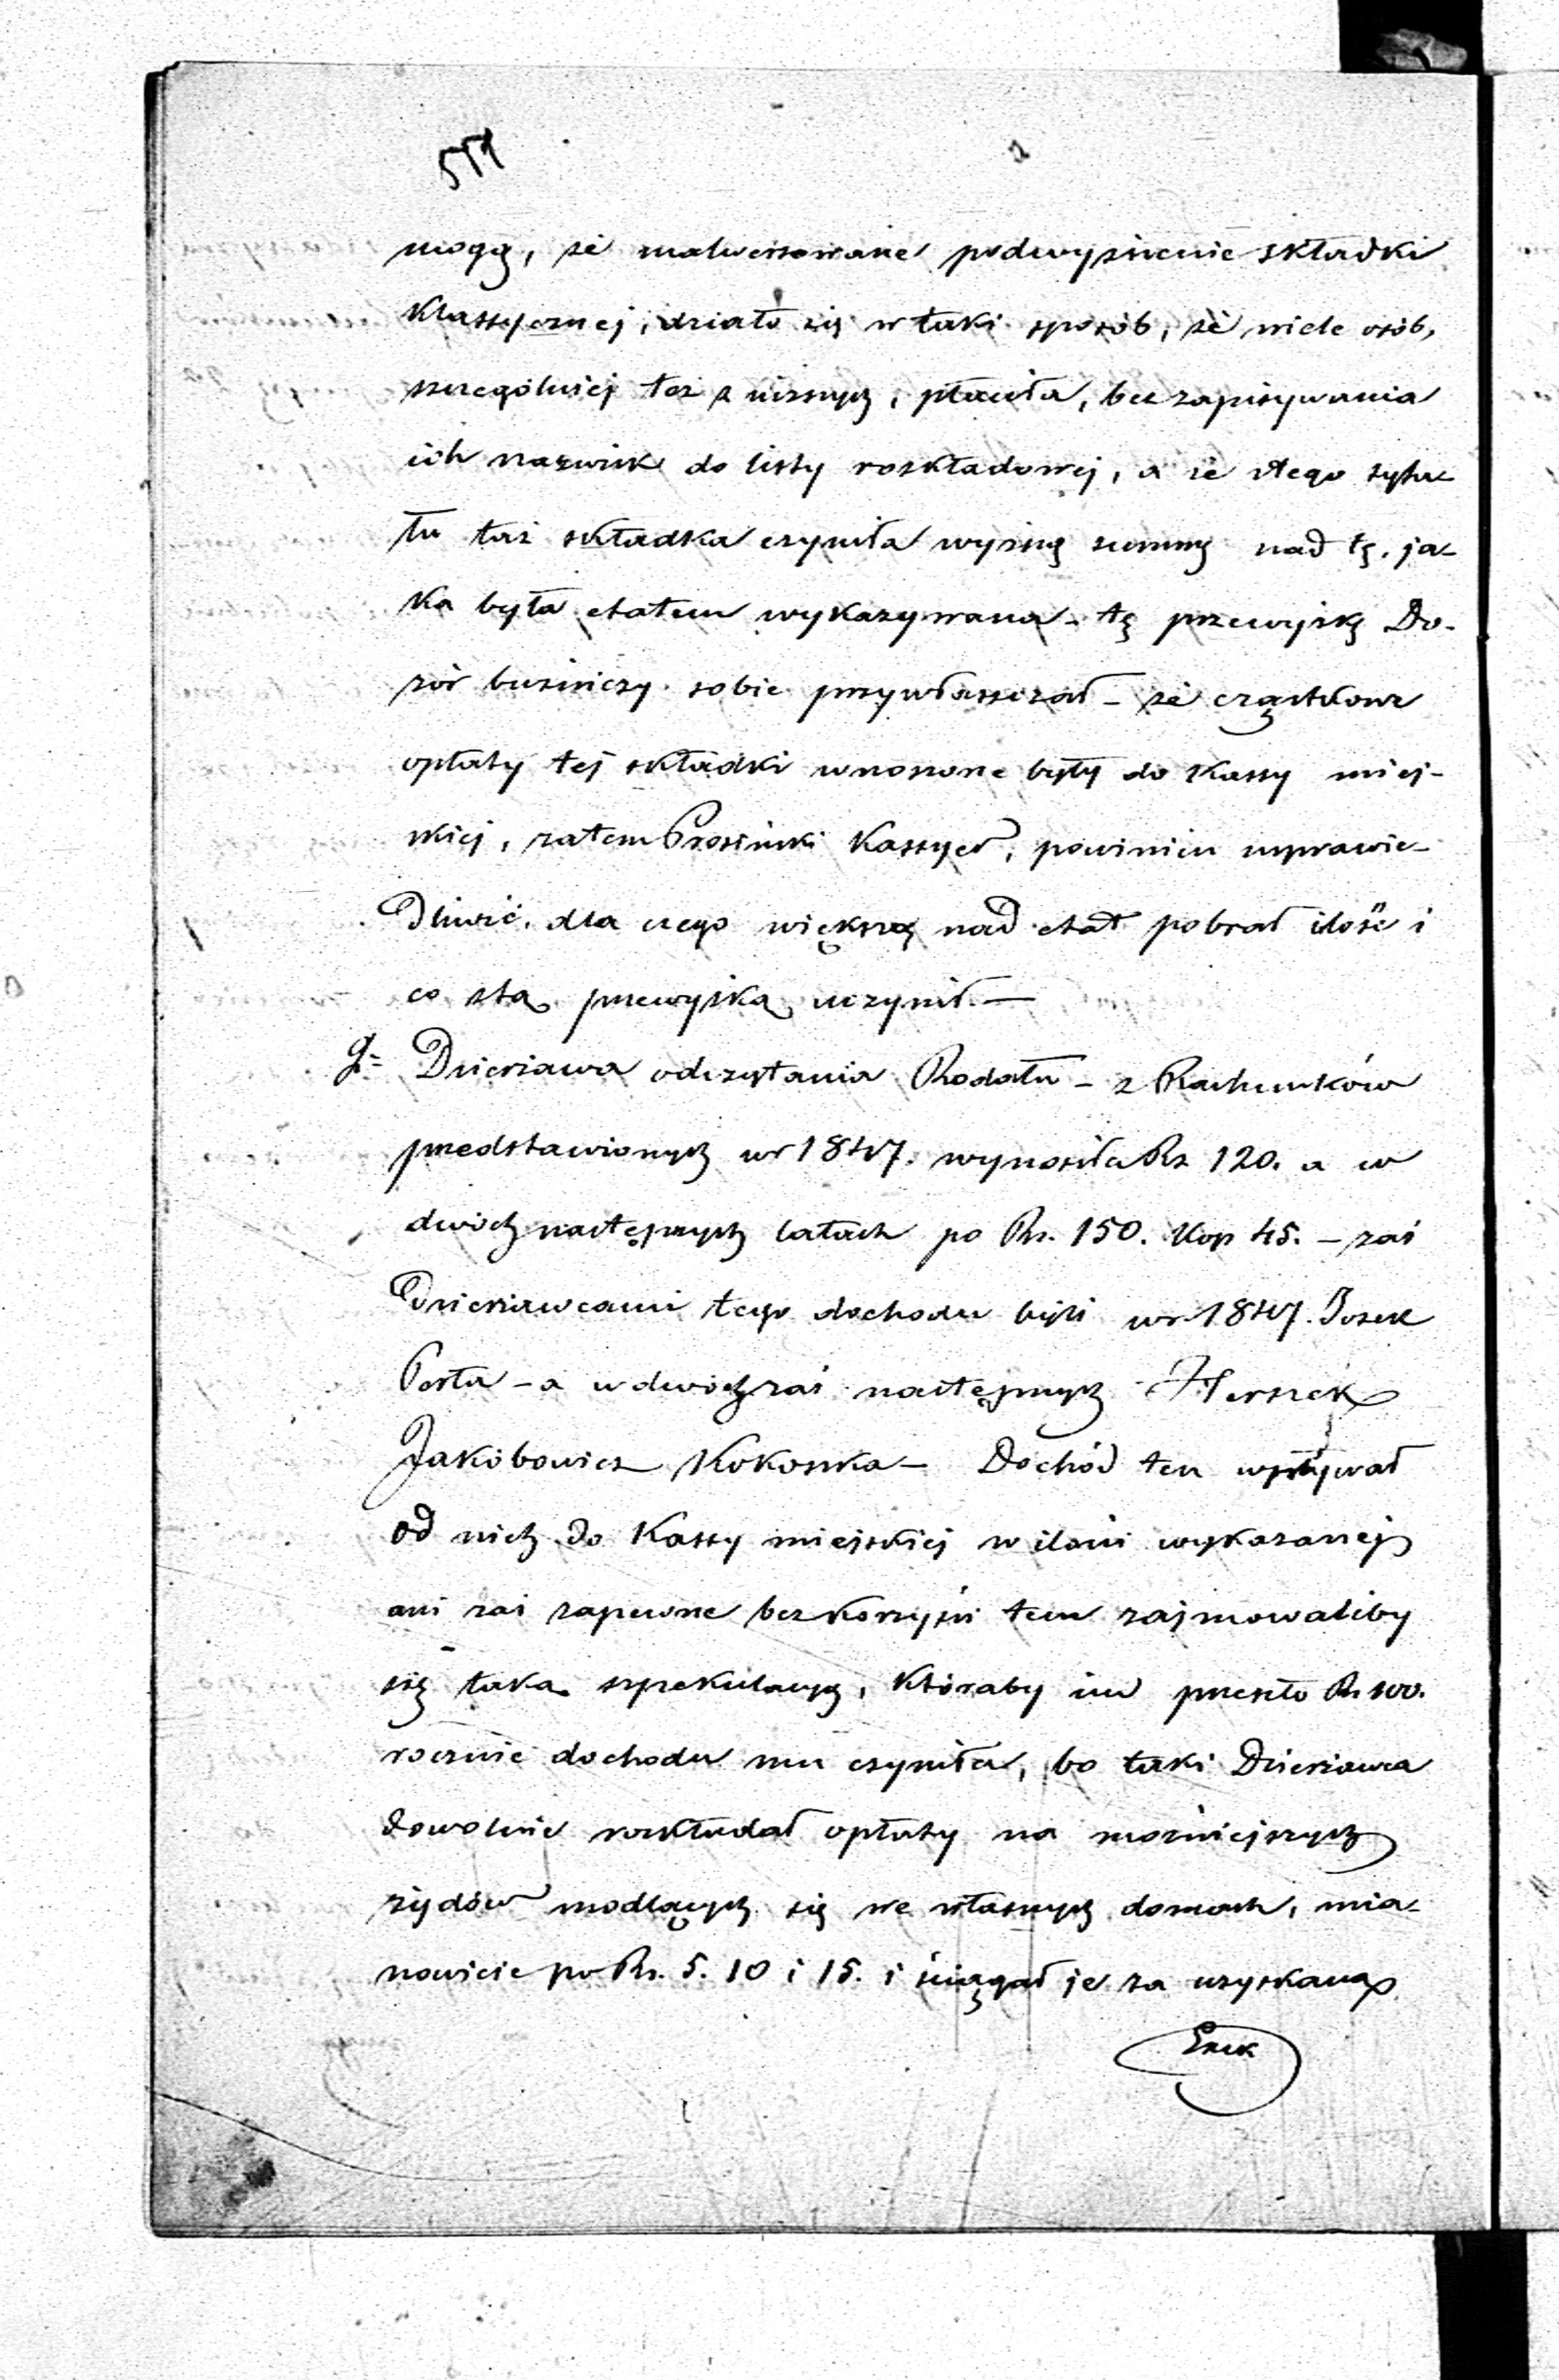 mogą, że malwersowane podwyższenie składki
klassycznej, działo się w taki sposób, że wiele osób,
szczególniej też z niższych, płaciła, bez zapisywania
ich nazwisk do listy rozkładowej, a że z tego tytu-
łu taż składka czyniła wyższą summę nad tę, ja-
ka była etatem wykazywana – tę przewyżkę Do-
zór bużniczy sobie przywłaszczał – że cząstkowe
opłaty tej składki wnoszone były do Kassy miej-
skiej, zatem Kassyer, powinien usprawie-
dliwić, dla czego większą nad etat pobrał ilość i
co z tą przewyżką uczynił. –
Dzierżawa odczytania Rodału – z Rachunków
przedstawionych w r 1847. wynosiła Rs 120. a w
dwóch następnych latach po Rs. 150. Kop 45. – zaś
Dzierżawcami tego dochodu byli w r 1847. Josek
Perła – a w dwóch zaś następnych Herszek
Jakóbowicz Kokoszka – Dochód ten wpływał
od nich do Kassy miejskiej w ilości wykazanej
ani zaś zapewne bez korzyści tem zajmowaliby
się taką szpekulacyą, któraby im przeszło Rs 100.
rocznie dochodu nie czyniła, bo taki Dzierżawca
dowolnie rozkładał opłaty na możniejszych
żydów modlących się we własnych domach, mia-
nowicie po Rs. 5. 10 i 15. i ściągał je za uzyskaną